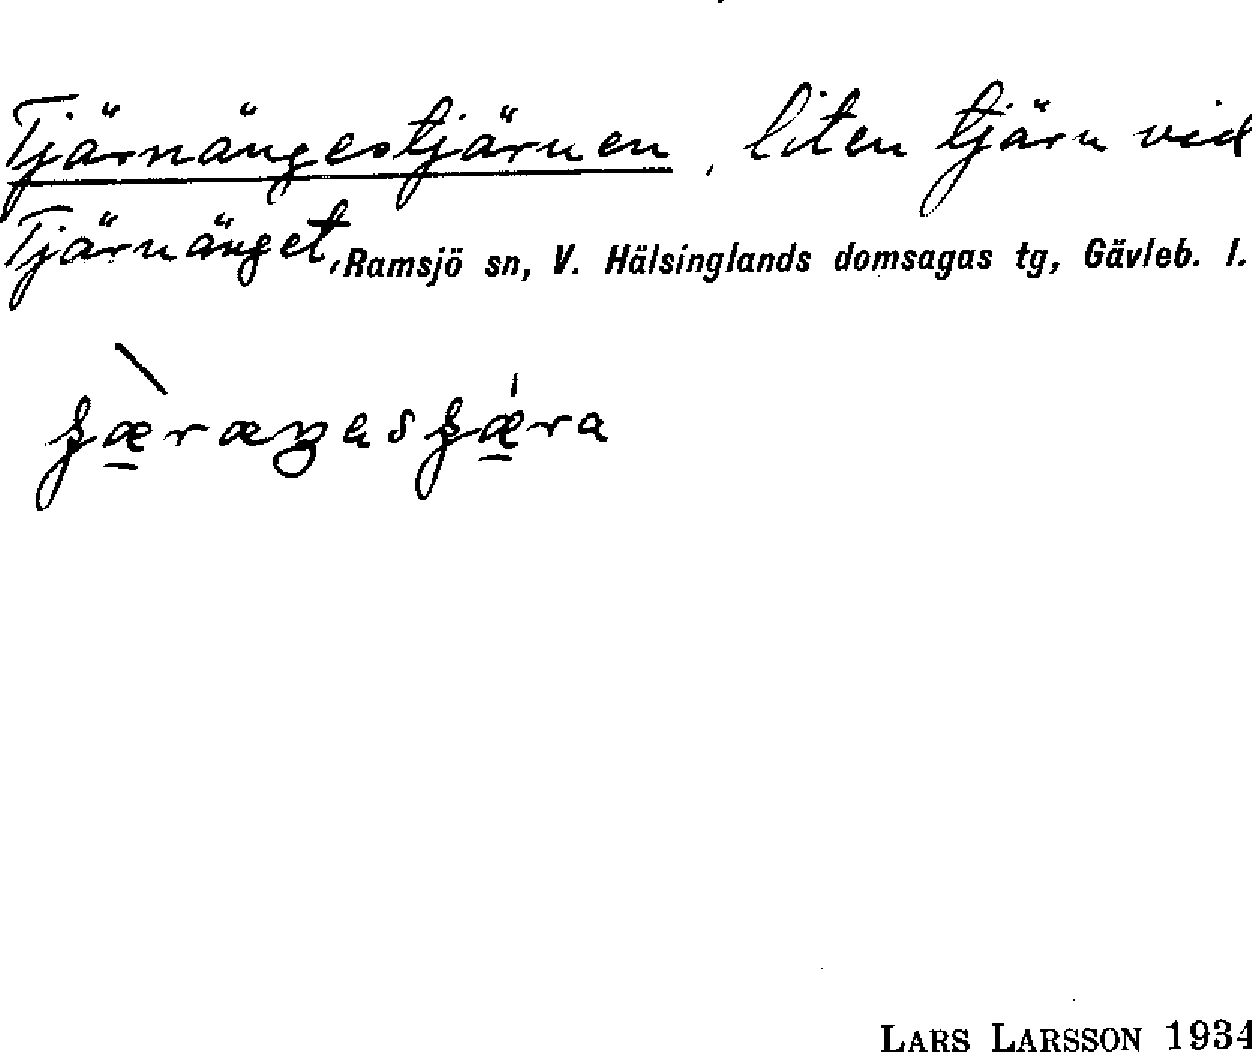 Tjärnängestjärnen, liten tjärn vid
Tjärnänget, Ramsjö sn, V. Hälsinglands domsagas tg, Gävleb. l.
LARS LARSSON 1934